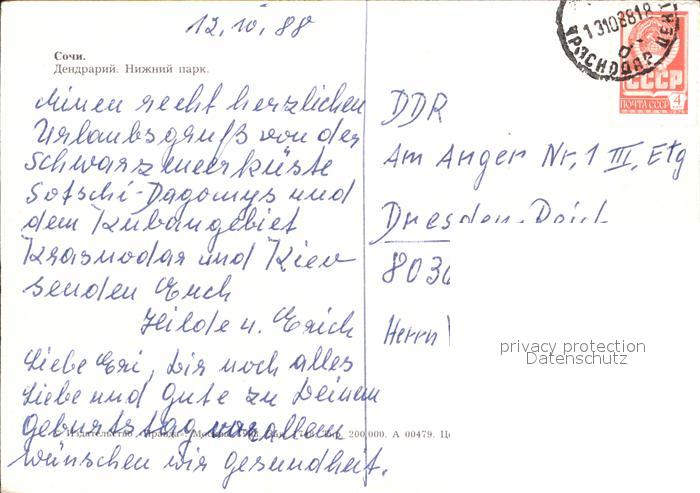 12.10.88
Сочи.
Дендрарий. Нижний парк.
Einen recht herzlichen
Urlaubsgruß von der
Schwarzmeerküste
Sotschi-Dagomys und
dem Kubangebiet
Krasnodar und Kiew
senden Euch
Hilde u. Erich
Liebe Eri, Dir noch alles
Liebe und Gute zu Deinem
Geburtstag vor allem
wünschen wir Gesundheit.
Издательство „Правда“. Москва. 200.000. А 00479.
КРАСНОДАР
13108818
СССР
ПОЧТА СССР
4
DDR
Am Anger Nr, 1 III, Etg
Dresden
803
Herrn
privacy protection
Datenschutz